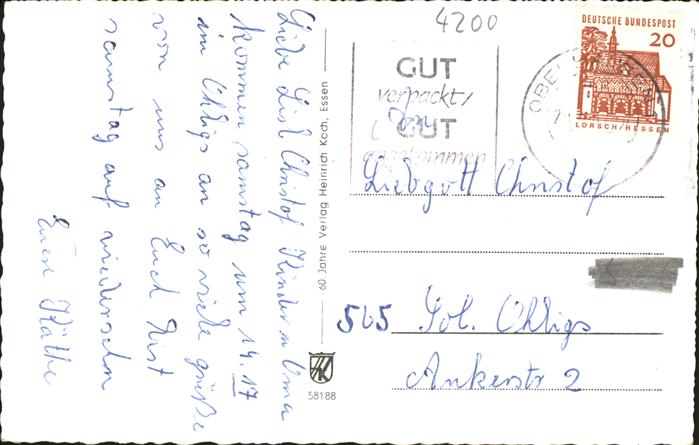 Liebe Lisl Christof Kinder u Oma
kommen samstag um 14.17
in Ohligs an so viele grüße
von uns an Euch bist
samstag auf wiedersehn
Eure Käthe
60 Jahre Verlag Heinrich Koch, Essen
58188
4200
GUT
verpackt/
GUT
angekommen
DEUTSCHE BUNDESPOST
20
LORSCH/HESSEN
Liebgott Christof
565 Sol. Ohligs
Ankerstr 2